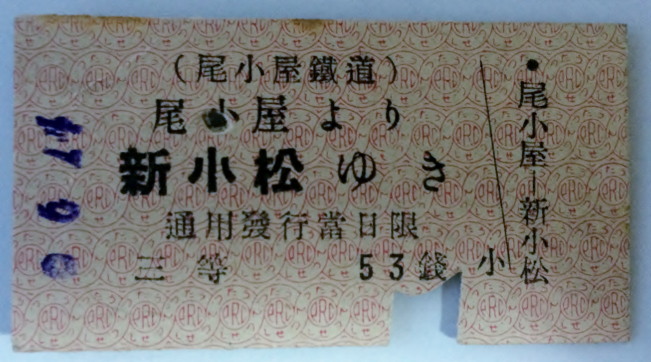 (尾小屋鐵道)
尾小屋より
新小松ゆき
通用發行當日限
三等 53錢
小
尾小屋—新小松